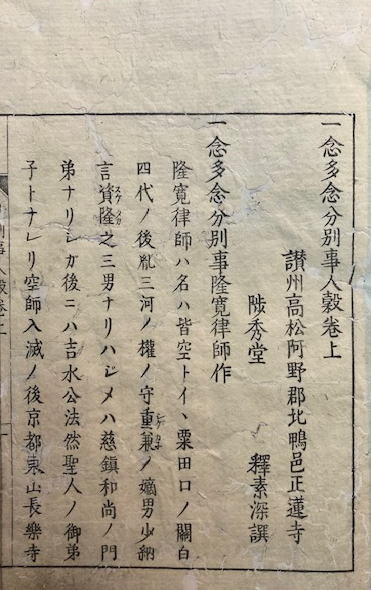 一念多念分別事人穀卷上
讃州高松阿野郡北鴨邑正蓮寺
陟秀堂　釋素深譔
一念多念分別事隆寛律師作
隆寛律師ハ名ハ皆空トイヽ粟田口ノ關白
四代ノ後胤三河ノ權ノ守重兼ノ嫡男少納
言資隆之三男ナリハジメハ慈鎮和尚ノ門
弟ナリシガ後ニハ吉水公法然聖人ノ御弟
子トナレリ空師入滅ノ後京都東山長樂寺
別事人穀卷上